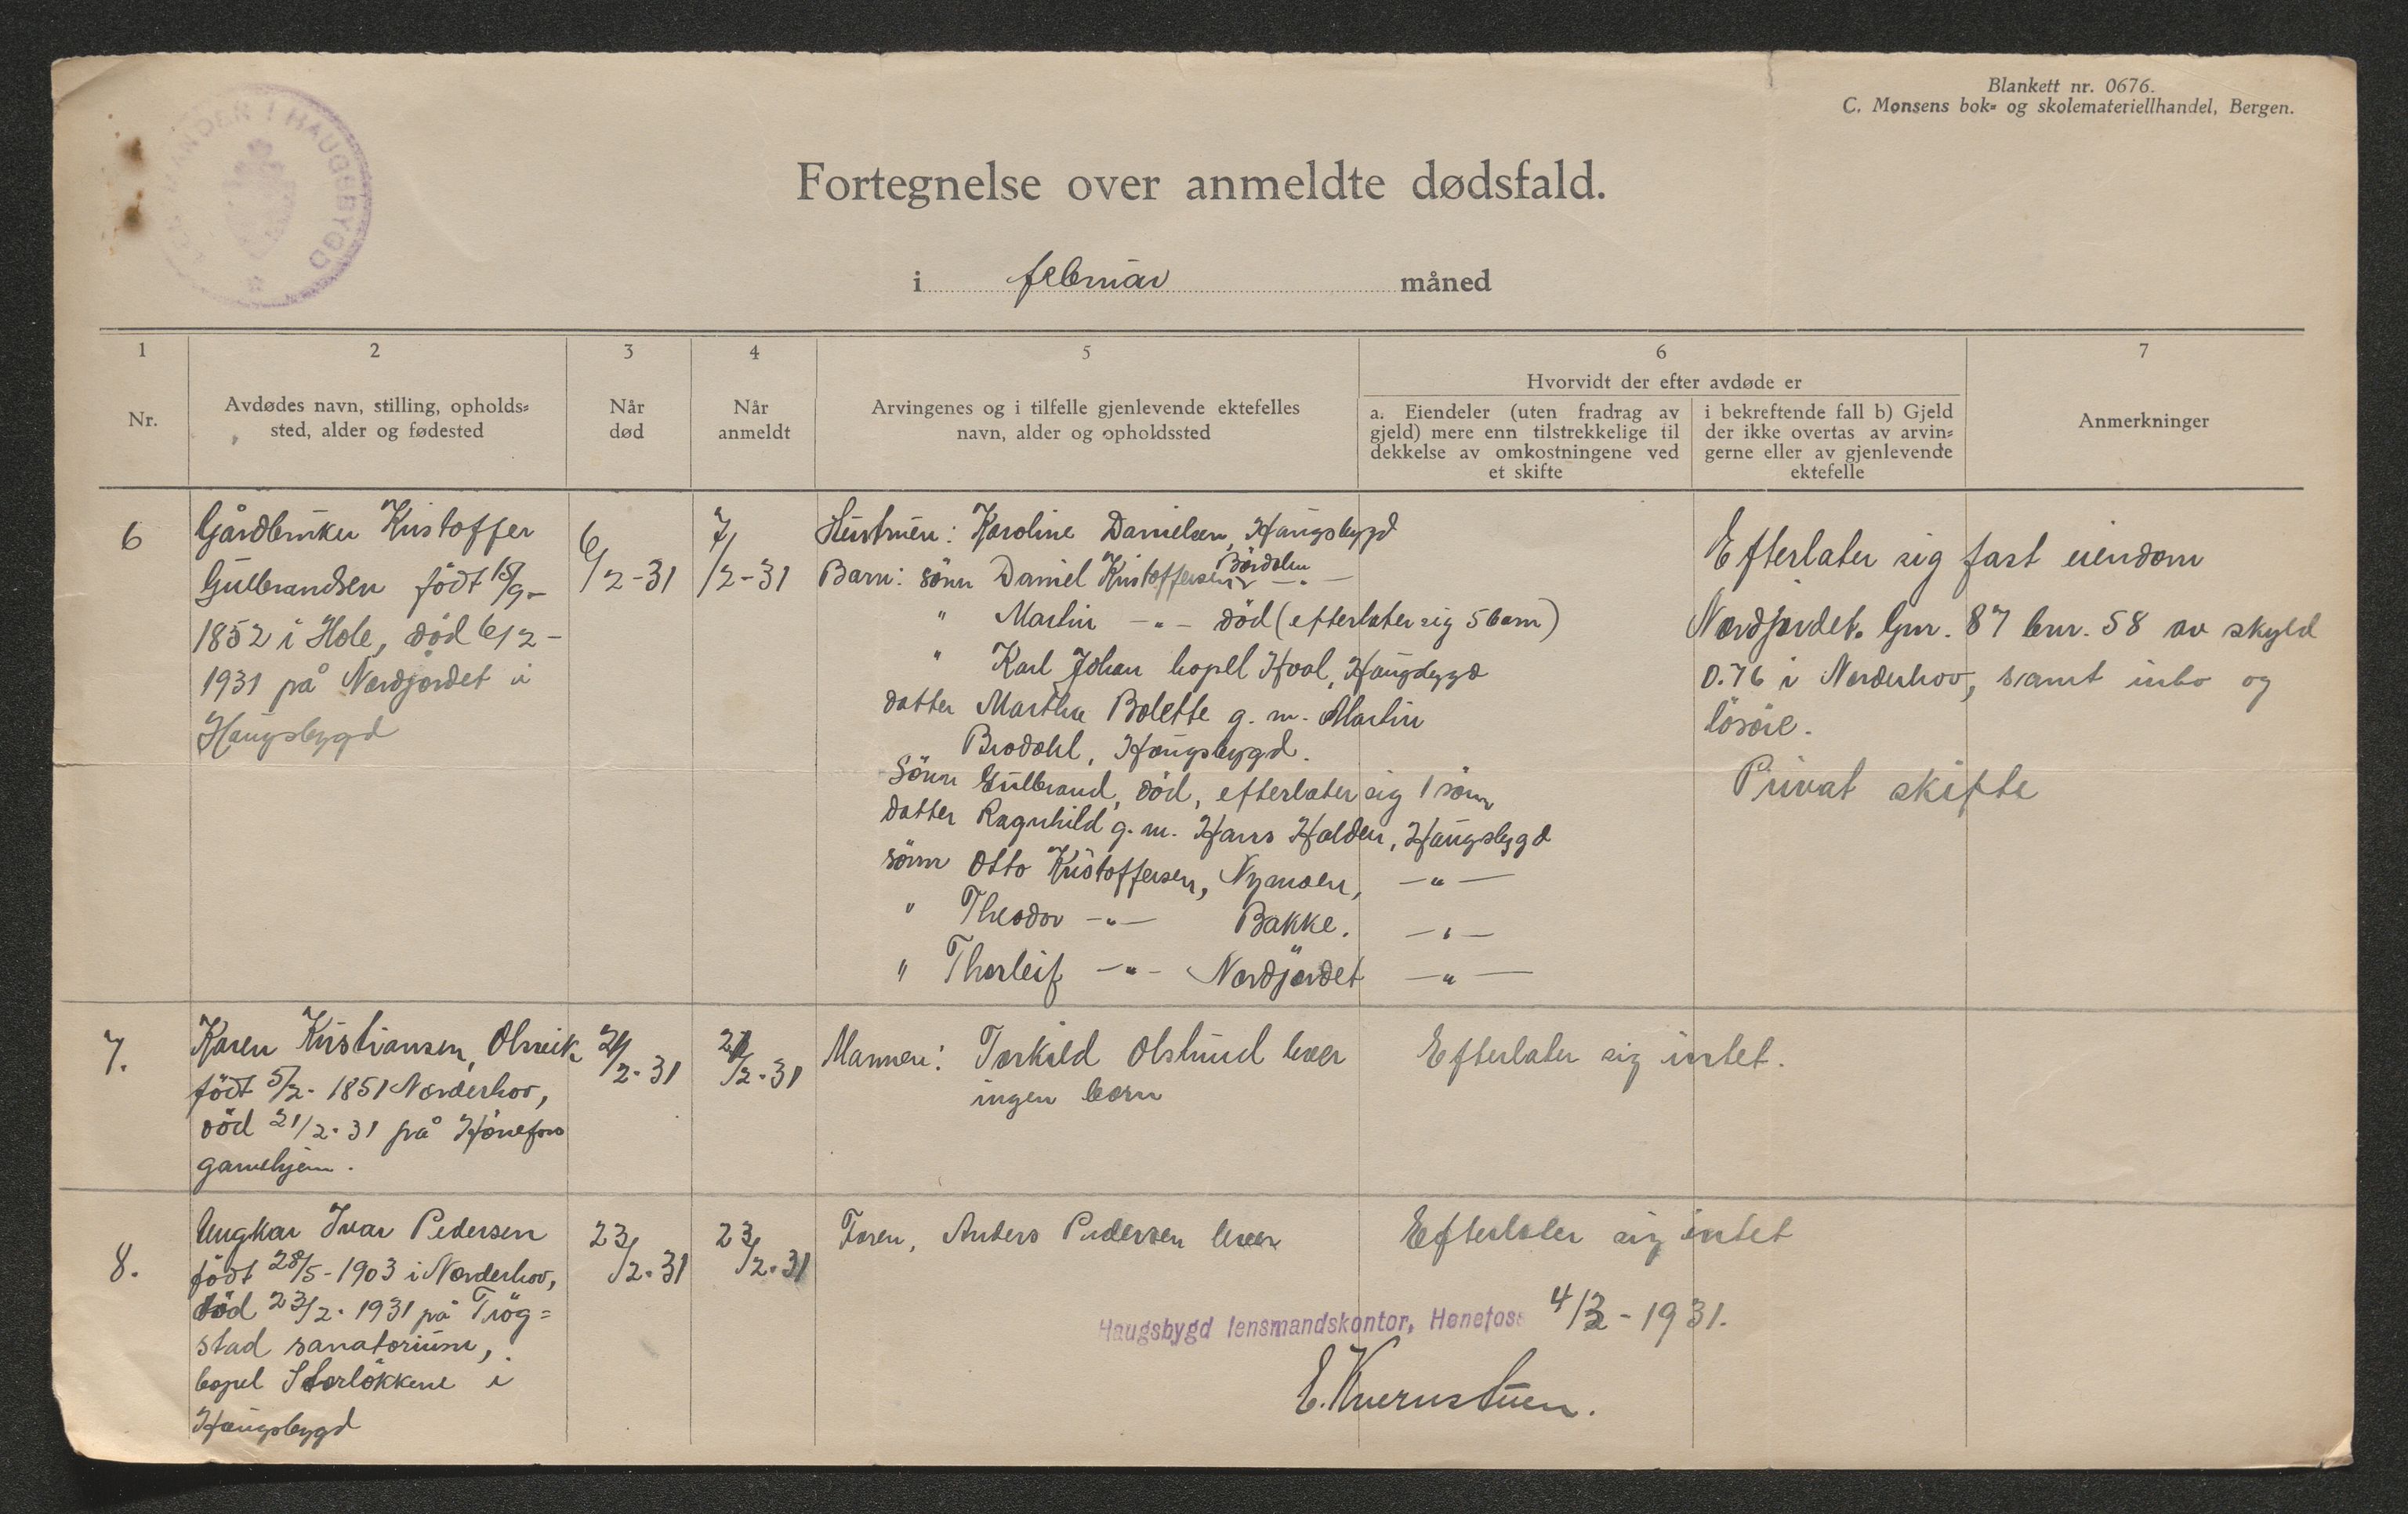 Blankett nr. 0676.
C. Monsens bok= og skolemateriellhandel, Bergen.
I HAUGSBYGD
Fortegnelse over anmeldte dødsfald.
i februar måned
1 2 3 4 5 6 7
Nr.
Avdødes navn, stilling, opholds=
sted, alder og fødested
Når
død
Når
anmeldt
Arvingenes og i tilfelle gjenlevende ektefelles
navn, alder og opholdssted
Hvorvidt der efter avdøde er
a. Eiendeler (uten fradrag av
gjeld) mere enn tilstrekkelige til
dekkelse av omkostningene ved
et skifte
i bekreftende fall b) Gjeld
der ikke overtas av arvin=
gerne eller av gjenlevende
ektefelle
Anmerkninger
6
Gårdbruker Kristoffer
Gulbrandsen født 15/9-
1852 i Hole, död 6/2-
1931 på Nordjordet i
Haugsbygd
6/2-31
7/2-31
Hustruen: Karoline Danielsen, Haugsbygd
Barn: sönn Daniel Kristoffersen, Bördalen —"—
" Martin —"— död (efterlater sig 5 barn)
" Karl Johan bopel Hval, Haugsbygd
datter Martha Bolette g. m. Martin
Brodahl, Haugsbygd.
Sönn Gulbrand, död, efterlater sig 1 sönn
datter Ragnhild g. m. Hans Halden, Haugsbygd
sönn Otto Kristoffersen, Nymoen, —"—
" Theodor —"— Bakke. —"—
" Thorleif —"— Nordjordet —"—
Efterlater sig fast eiendom
Nordjordet. Gnr. 87 bnr. 58 av skyld
0.76 i Norderhov, samt inbo og
lösöre.
Privat skifte
7.
Karen Kristiansen,
födt 5/2- 1851 Norderhov,
död 21/2-31 på Hönefoss
gamlehjem.
21/2-31
/2-31
Mannen: Torkild Olslund lever
ingen barn
Efterlater sig intet.
8.
Ungkar Ivar Pedersen
födt 28/5-1903 i Norderhov,
död 23/2-1931 på Trög=
stad sanatorium,
bopel Storlökkene i
Haugsbygd
23/2-31
23/2-31
Faren, Anders Pedersen lever
Efterlater sig intet
Haugsbygd lensmandskontor, Hønefoss 4/3-1931.
E. Kvernstuen.